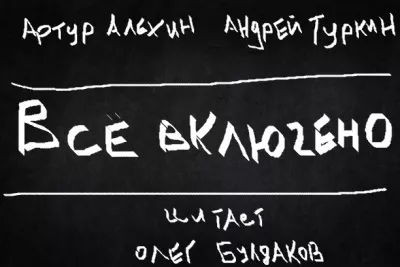 Артур Алехин Андрей Туркин
Всё включено
читает
Олег Булдаков